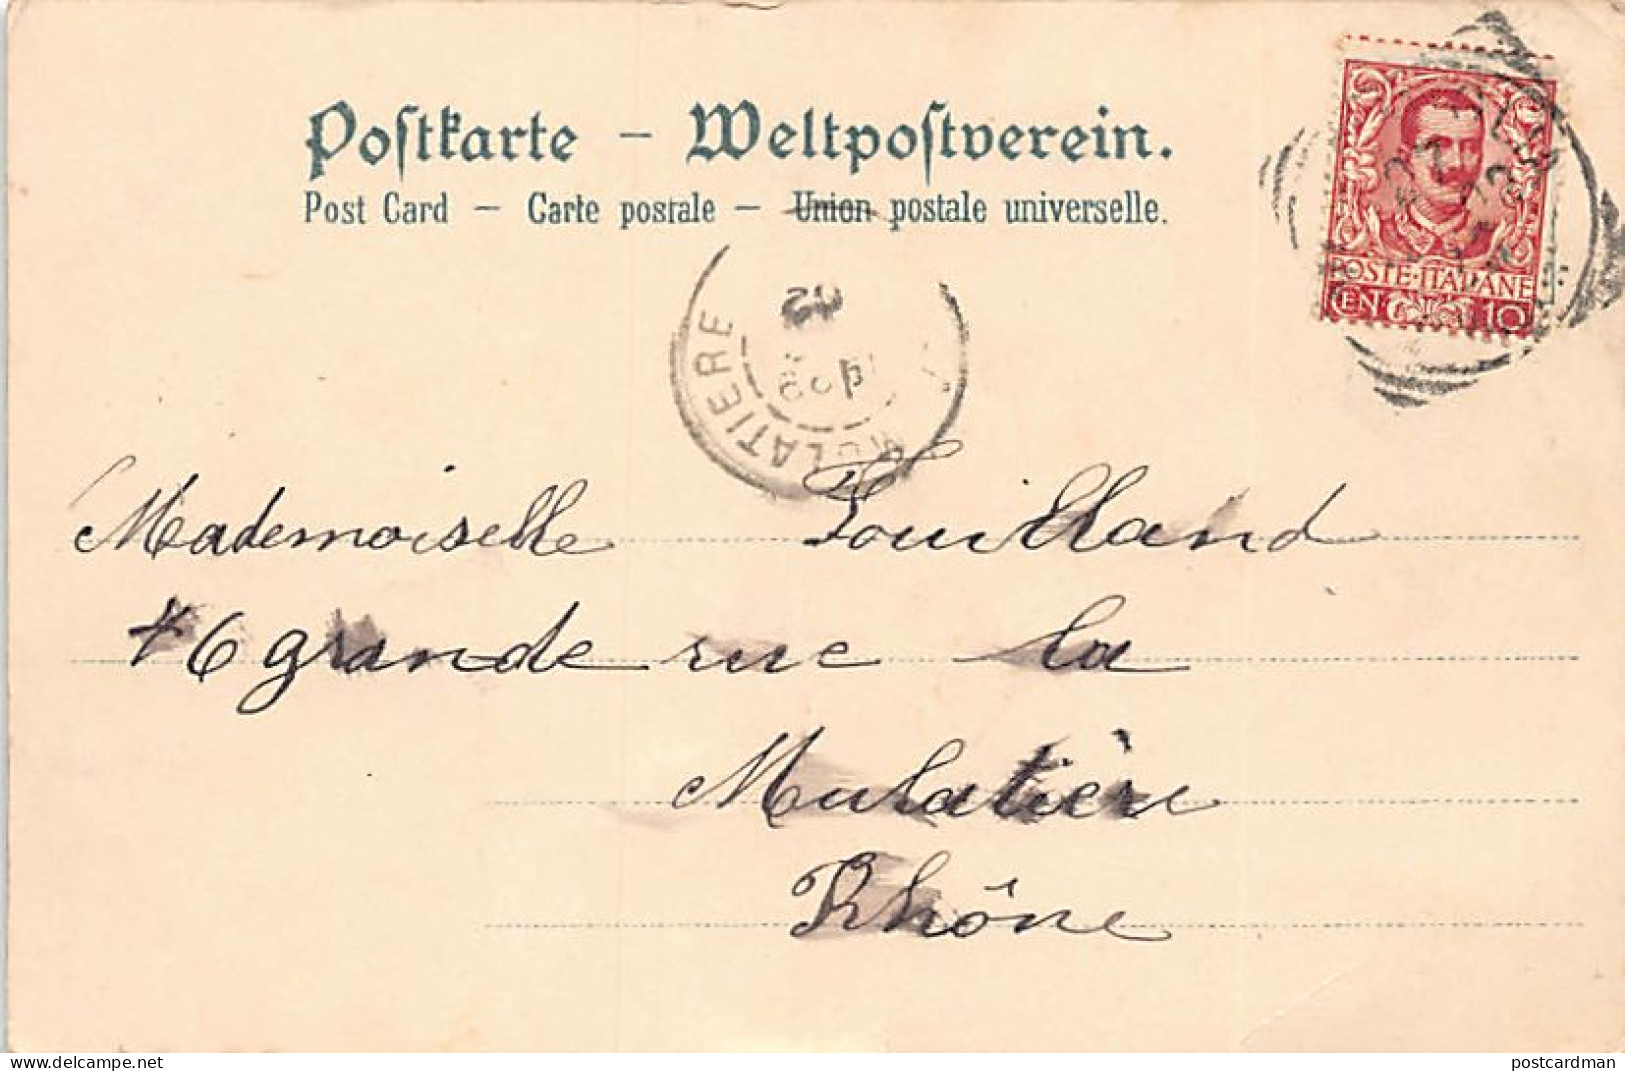 Postkarte – Weltpostverein.
Post Card – Carte postale – Union postale universelle.
POSTE·ITALIANE
CEN 10
MULATIERE
02
Mademoiselle Fouilland
46 grande rue la
Mulatière
Rhône
www.delcampe.net
postcardman